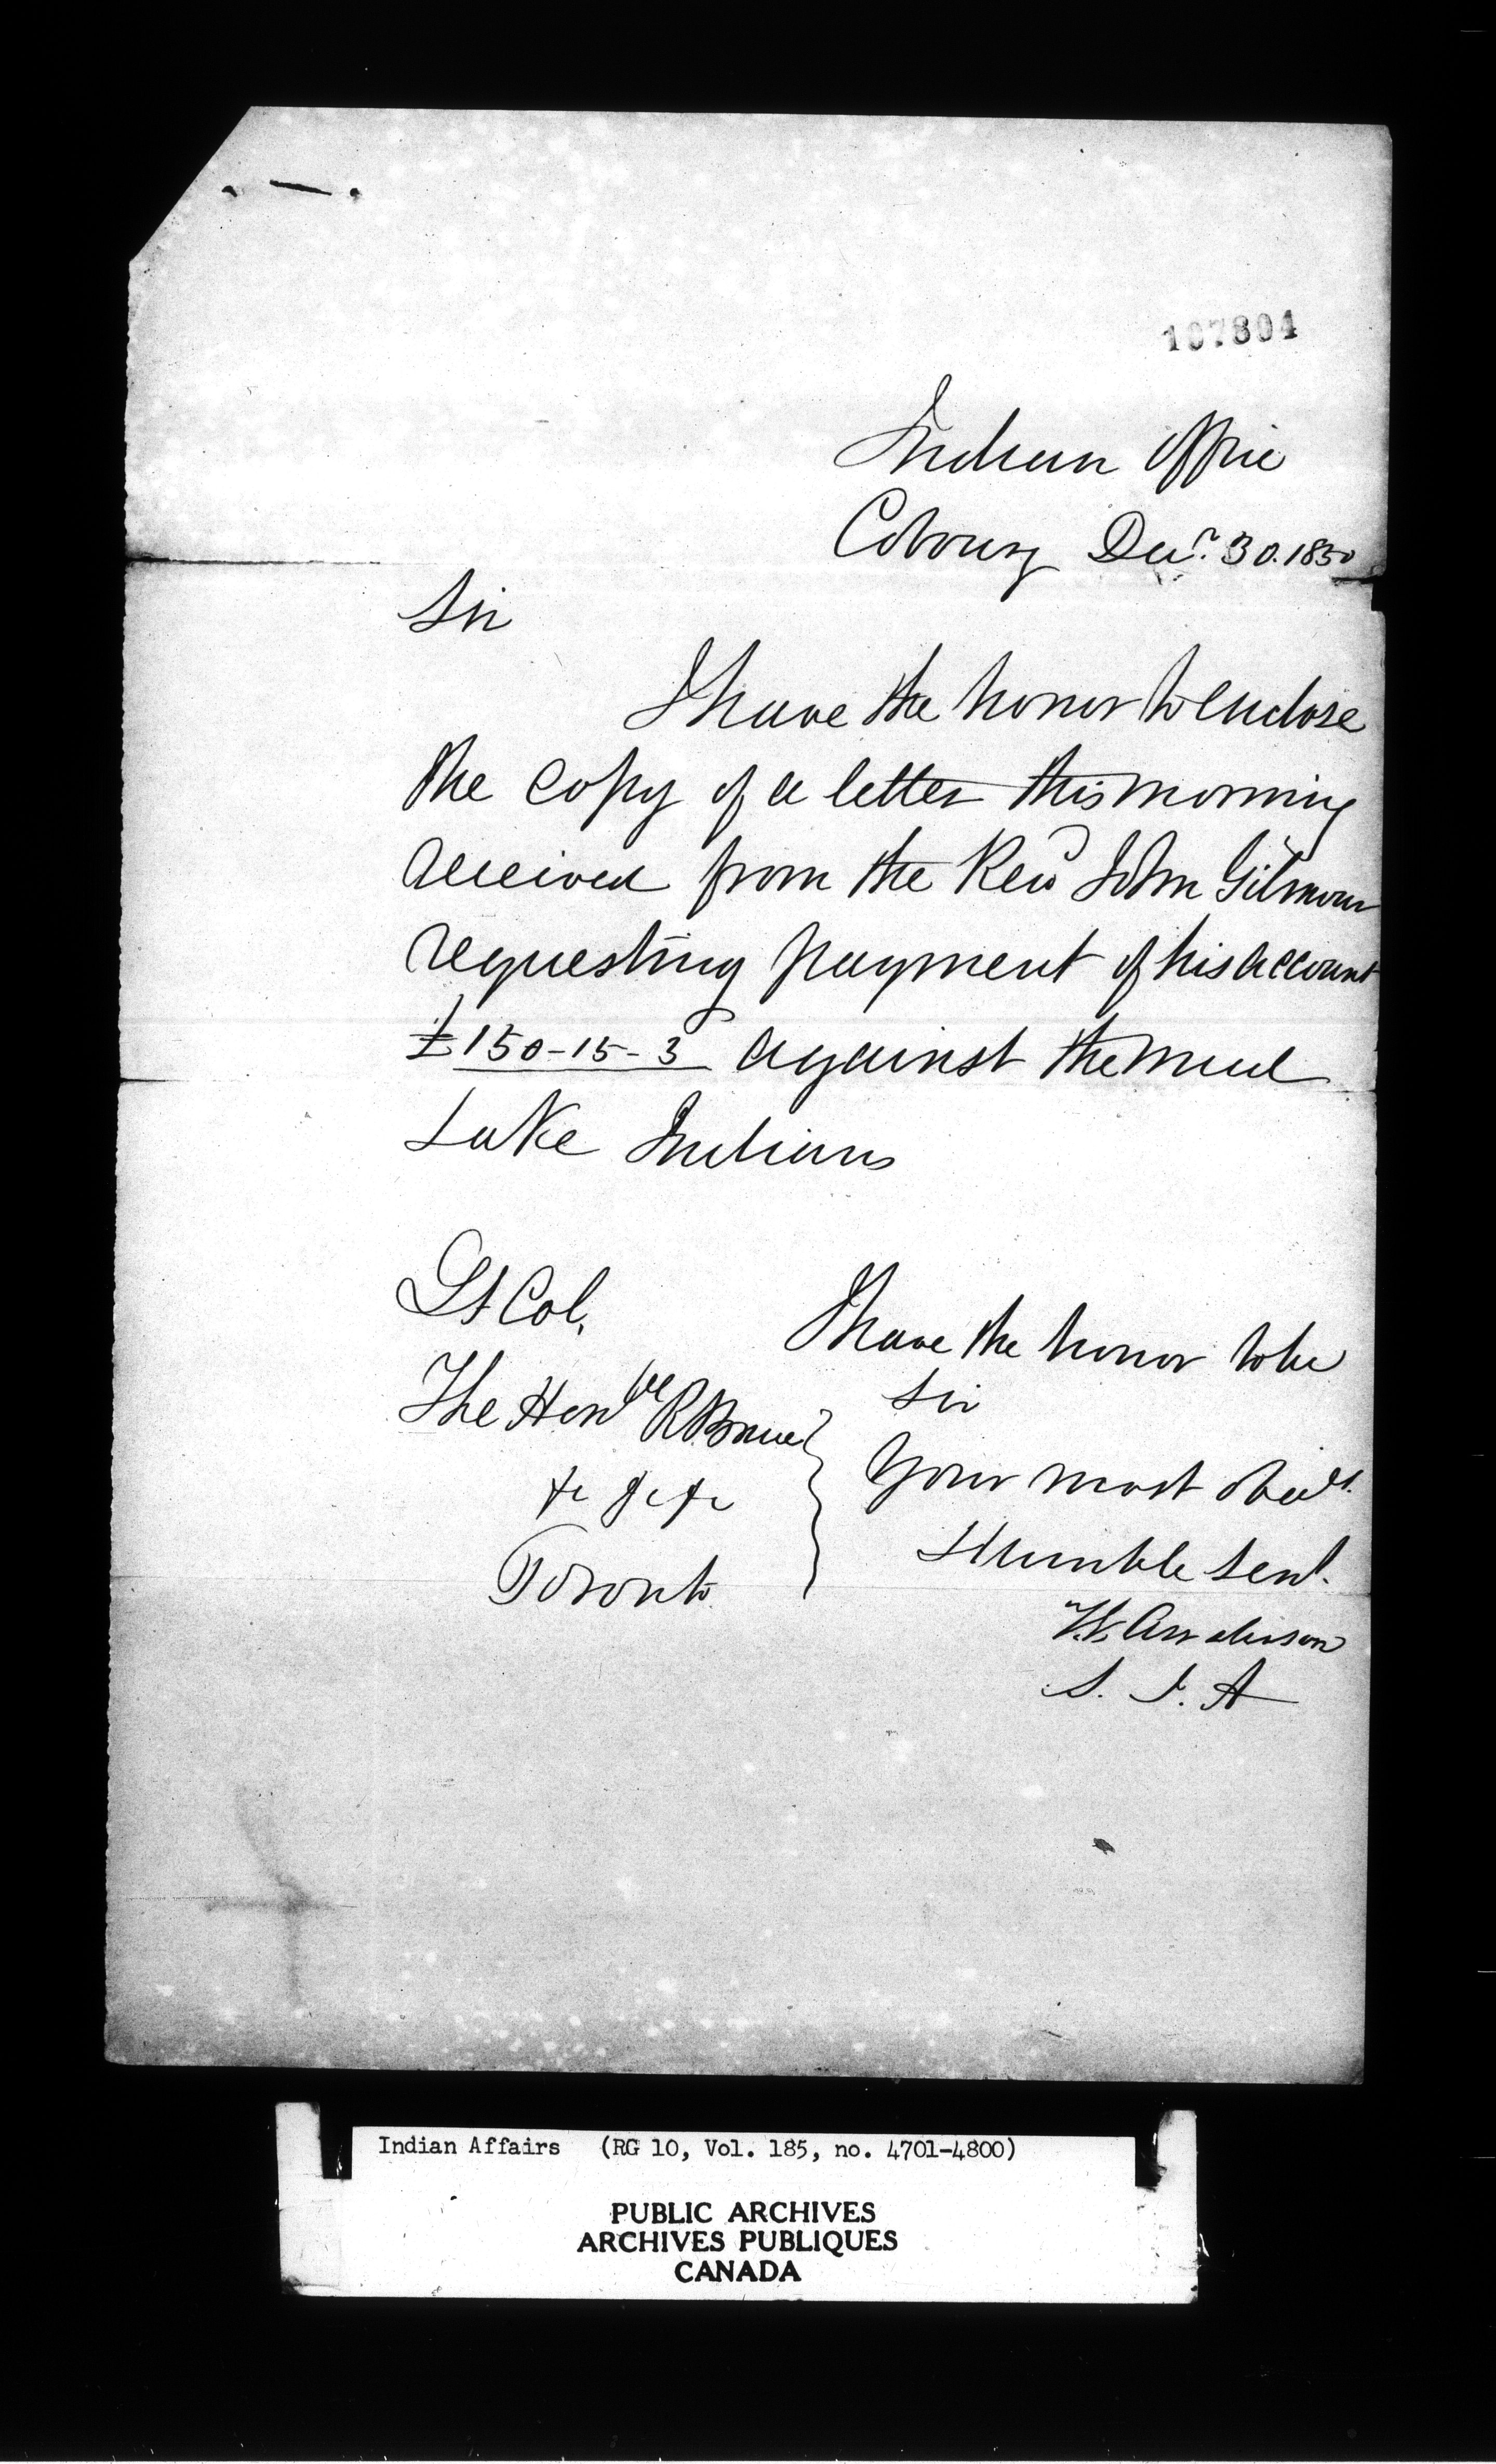 107804
Indian Office
Cobourg Decr. 30. 1850
Sir
I have the honor to enclose
the copy of a letter this morning
received from the Revd John Gilmour
requesting payment of his account
£150-15-3 against the Mud
Lake Indians
Lt Col.
The Honble R Bruce
&c &c &c
Toronto
I have the honor to be
Sir
Your most obedt.
Humble Servt.
Anderson
S. I. A
Indian Affairs (RG 10, Vol. 185, no. 4701-4800)
PUBLIC ARCHIVES
ARCHIVES PUBLIQUES
CANADA